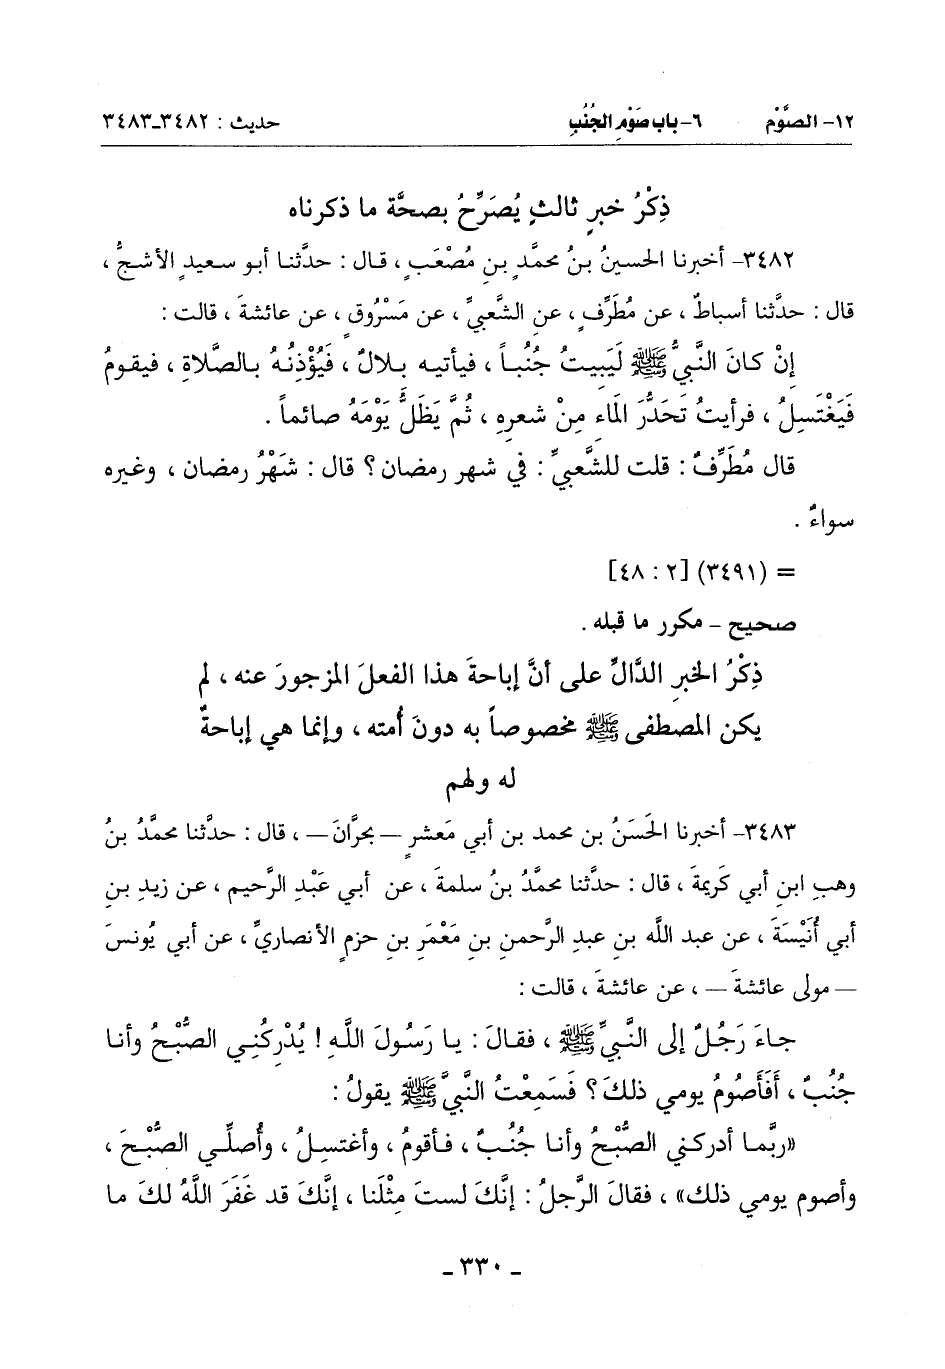 ١٢- الصَّوْم ٦- باب صَوْمِ الجُنُبِ حديث : ٣٤٨٢-٣٤٨٣
ذِكْرُ خبرٍ ثالثٍ يُصَرِّحُ بصحَّة ما ذكرناه
٣٤٨٢- أخبرنا الحسينُ بنُ محمَّدٍ بنِ مُصْعَبٍ ، قال : حدَّثنا أبو سعيدٍ الأشجُّ ،
قال : حدَّثنا أسباطٌ ، عن مُطَرِّفٍ ، عنِ الشَّعبيِّ ، عن مَسْرُوقٍ ، عن عائشةَ ، قالت :
إنْ كانَ النَّبيُّ ﷺ لَيَبِيتُ جُنُباً ، فيأتيه بلالٌ ، فَيُؤْذِنُهُ بالصَّلاةِ ، فيقومُ
فَيَغْتَسِلُ ، فرأيتُ تَحَدُّرَ الماء مِنْ شعرِهِ ، ثُمَّ يَظَلُّ يَوْمَهُ صائماً .
قال مُطَرِّفٌ : قلت للشَّعبيِّ : في شهر رمضان ؟ قال : شَهْرُ رمضان ، وغيره
سواءٌ .
= (٣٤٩١) [٢ : ٤٨]
صحيح – مكرر ما قبله .
ذِكْرُ الخبرِ الدَّالِّ على أنَّ إباحةَ هذا الفعلَ المزجورَ عنه ، لم
يكن المصطفى ﷺ مخصوصاً به دونَ أُمته ، وإنما هي إباحةٌ
له ولهم
٣٤٨٣- أخبرنا الحَسَنُ بن محمد بن أبي مَعشرٍ — بحرَّانَ — ، قال : حدَّثنا محمَّدُ بنُ
وهبِ ابنِ أبي كَريمةَ ، قال : حدَّثنا محمَّدُ بنُ سلمةَ ، عن أبي عَبْدِ الرَّحيم ، عن زيدِ بنِ
أبي أُنَيْسَةَ ، عن عبد اللَّه بنِ عبدِ الرَّحمنِ بنِ مَعْمَرِ بنِ حزمٍ الأنصاريِّ ، عن أبي يُونسَ
— مولى عائشةَ — ، عن عائشةَ ، قالت :
جاءَ رَجُلٌ إلى النَّبيِّ ﷺ ، فقالَ : يا رَسُولَ اللَّهِ ! يُدْرِكُنِي الصُّبْحُ وأنا
جُنُبٌ ، أَفَأَصُومُ يومي ذلكَ ؟ فَسَمِعْتُ النَّبيَّ ﷺ يقولُ :
«ربَّما أدركني الصُّبْحُ وأنا جُنُبٌ ، فأقومُ ، وأغتسلُ ، وأُصلِّي الصُّبْحَ ،
وأصوم يومي ذلك» ، فقالَ الرَّجلُ : إنَّكَ لستَ مِثْلَنا ، إنَّكَ قد غَفَرَ اللَّهُ لكَ ما
ـ ٣٣٠ ـ